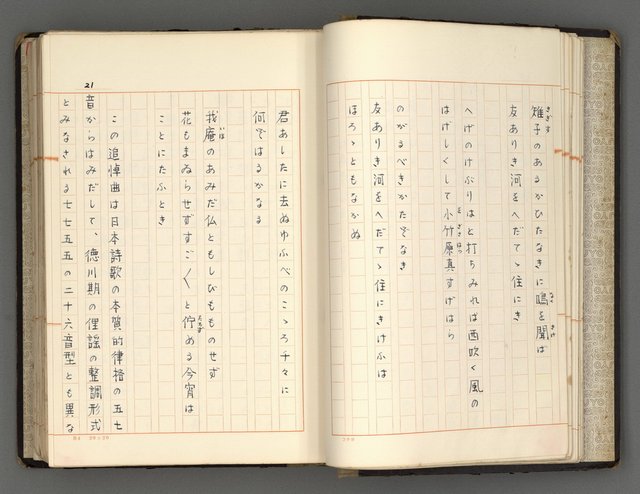 雉子のあるかひたなきに鳴を聞は
きぎす
なく
きけ
友ありき河をへだてゝ住にき
へげのけぶりはと打ちみれば西吹く風の
はげしくして小竹原真すげはら
をざさはら
のがるべきかたぞなき
友ありき河をへだてゝ住にきけふは
ほろゝともなかぬ
21
君あしたに去ぬゆふべのこゝろ千々に
何ぞはるかなる
我庵のあみだ仏ともしびもものせず
いほ
花もまゐらせずすごすごと佇める今宵は
ことにたふとき
この追悼曲は日本詩歌の本質的律格の五七
音からはみだして、徳川期の俚謡の整調形式
とみなされる七七五五の二十六音型とも異な